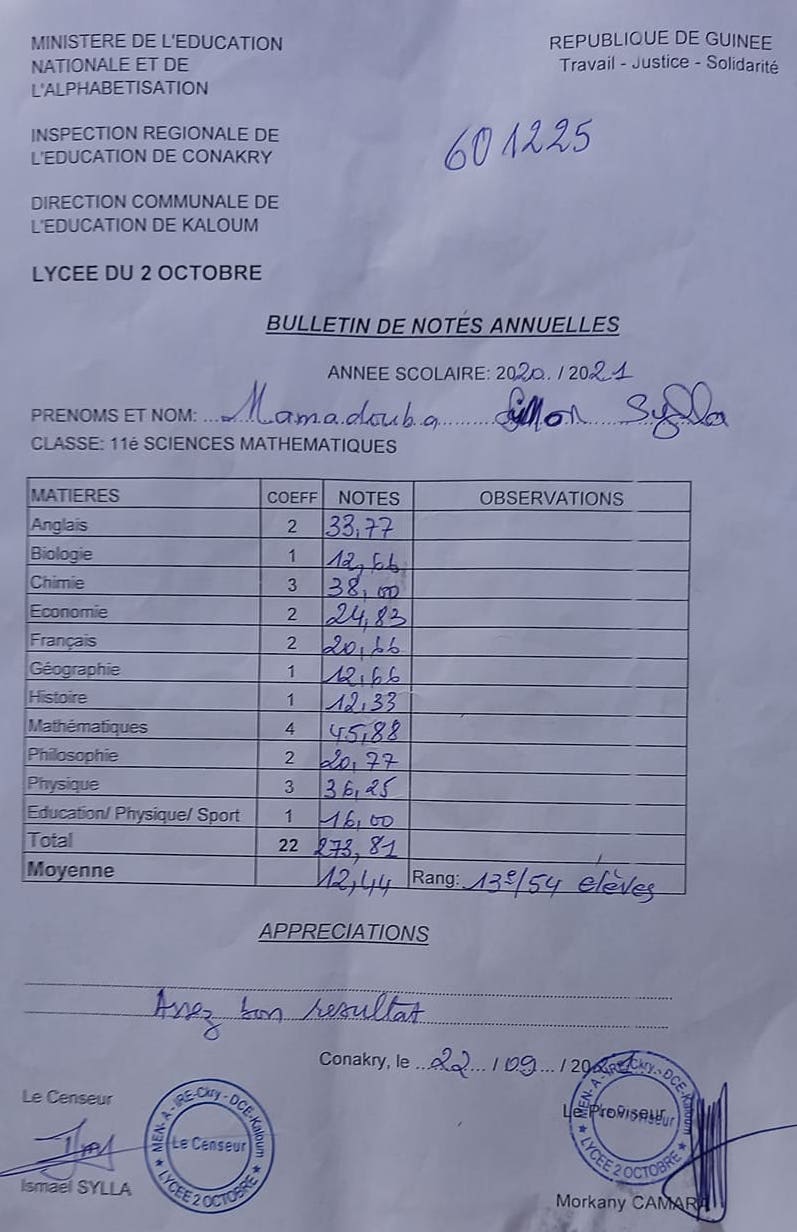 MINISTERE DE L'EDUCATION
NATIONALE ET DE
L'ALPHABETISATION
REPUBLIQUE DE GUINEE
Travail - Justice - Solidarité
601225
INSPECTION REGIONALE DE
L'EDUCATION DE CONAKRY
DIRECTION COMMUNALE DE
L'EDUCATION DE KALOUM
LYCEE DU 2 OCTOBRE
BULLETIN DE NOTES ANNUELLES
ANNEE SCOLAIRE: 2020 / 2021
PRENOMS ET NOM: Mamadouba Sylla
CLASSE: 11é SCIENCES MATHEMATIQUES
MATIERES COEFF NOTES OBSERVATIONS
Anglais 2 33,77
Biologie 1 12,66
Chimie 3 38,00
Economie 2 24,83
Français 2 20,66
Géographie 1 12,66
Histoire 1 12,33
Mathématiques 4 45,88
Philosophie 2 20,77
Physique 3 36,25
Education/ Physique/ Sport 1 16,00
Total 22 273,81
Moyenne 12,44 Rang: 13e/54 elèves
APPRECIATIONS
Assez bon resultat
Conakry, le 22 / 09 / 2021
Le Censeur
MEN-A - IRE-Ckry - DCE-Kaloum
Le Censeur
★ LYCEE 2 OCTOBRE ★
Ismael SYLLA
MEN-A - IRE-Ckry - DCE-Kaloum
Le Proviseur
★ LYCEE 2 OCTOBRE ★
Le Proviseur
Morkany CAMARA